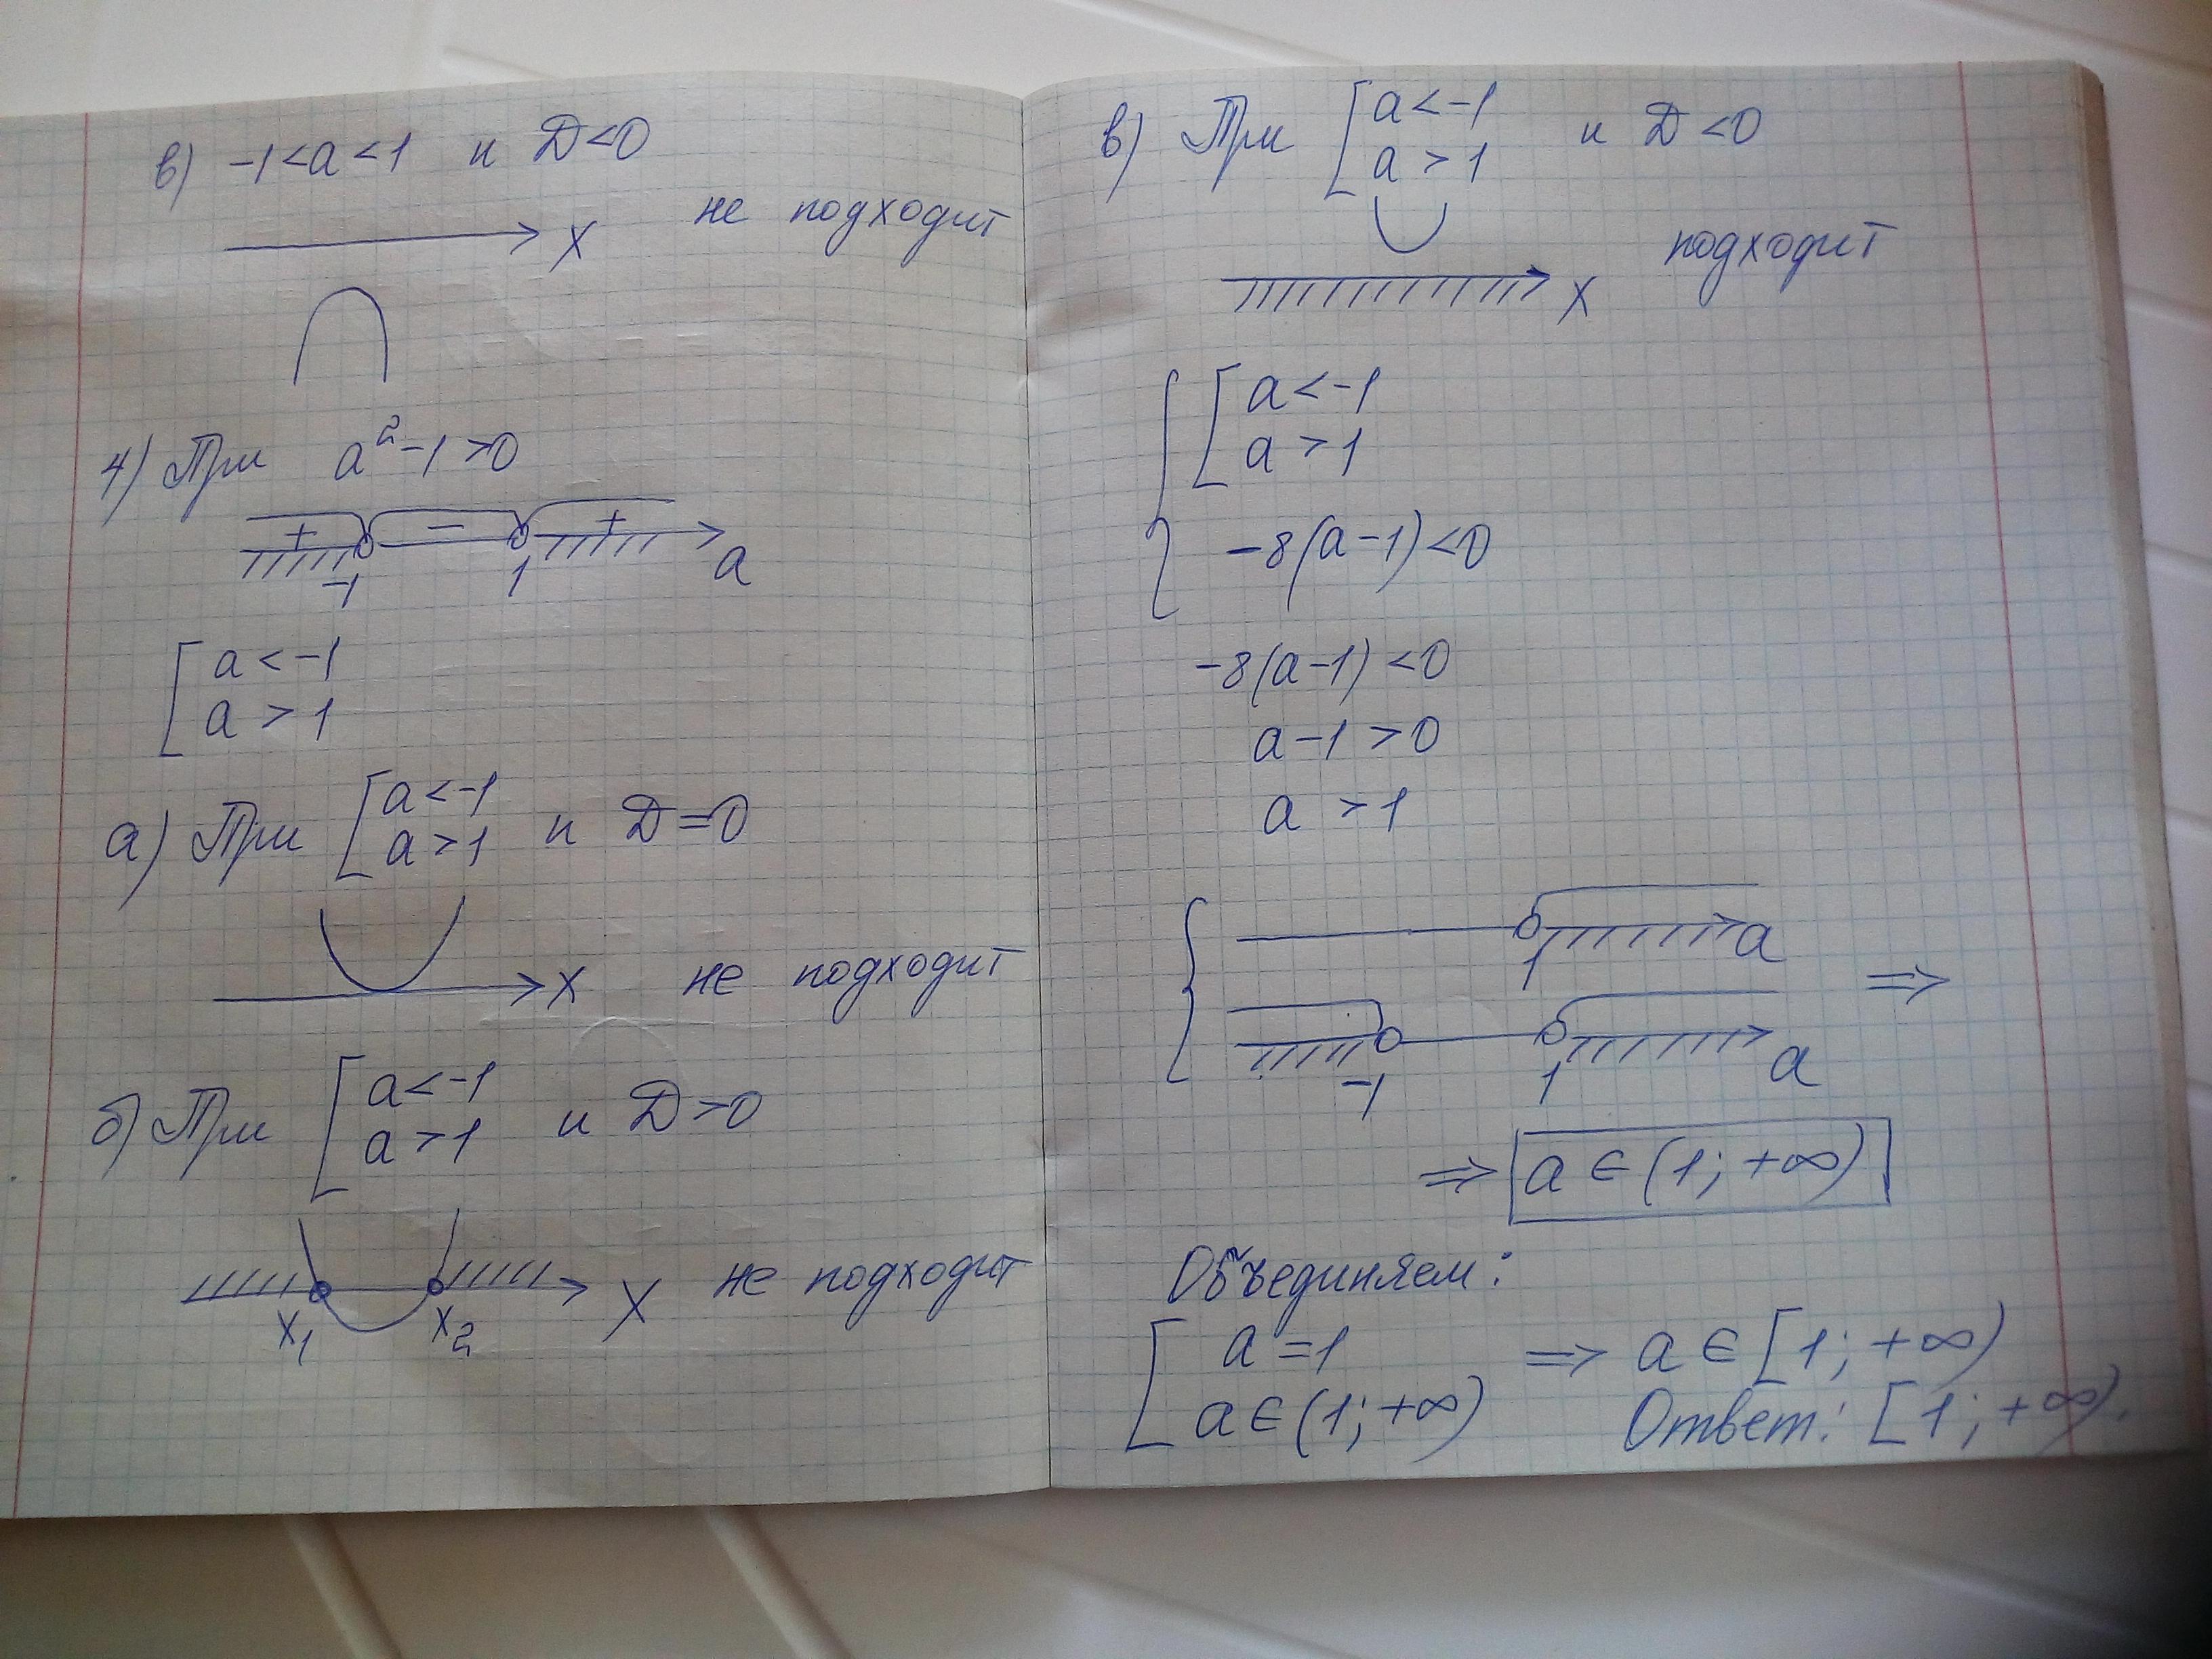 в) -1<a<1 и D<0
не подходит
x
4) При a²-1>0
+ - +
-1 1 a
[ a<-1
a>1
а) При [ a<-1
a>1 и D=0
x не подходит
б) При [ a<-1
a>1 и D>0
x₁ x₂ x не подходит
в) При [ a<-1
a>1 и D<0
подходит
x
{ [ a<-1
a>1
-8(a-1)<0
-8(a-1)<0
a-1>0
a>1
{ 1 a
-1 1 a ⇒
⇒ a∈(1;+∞)
Объединяем:
[ a=1 ⇒ a∈[1;+∞)
a∈(1;+∞) Ответ: [1;+∞).